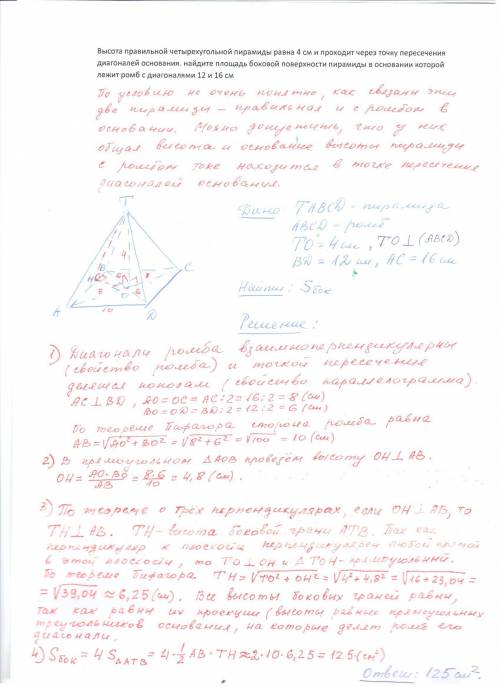 Высота правильной четырехугольной пирамиды равна 4 см и проходит через точку пересечения
диагоналей основания. найдите площадь боковой поверхности пирамиды в основании которой
лежит ромб с диагоналями 12 и 16 см
По условию не очень понятно, как связаны эти
две пирамиды – правильная и с ромбом в
основании. Можно допустить, что у них
общая высота и основание высоты пирамиды
с ромбом тоже находится в точке пересечения
диагоналей основания.
Дано: TABCD - пирамида
ABCD - ромб
TO = 4 см, TO⊥(ABCD)
BD = 12 см, AC = 16 см
Найти: Sбок
T
4
B
H
C
8
6
8
O
6
A
10
D
Решение:
1) Диагонали ромба взаимноперпендикулярны
(свойство ромба) и точкой пересечения
делятся пополам (свойство параллелограмма).
AC⊥BD, AO=OC=AC:2=16:2=8 (см)
BO=OD=BD:2=12:2=6 (см)
По теореме Пифагора сторона ромба равна
AB=√AO²+BO² = √8²+6² = √100 = 10 (см)
2) В прямоугольном ΔAOB проведём высоту OH⊥AB.
OH = AO·BO/AB = 8·6/10 = 4,8 (см).
3) По теореме о трёх перпендикулярах, если OH⊥AB, то
TH⊥AB. TH-высота боковой грани ATB. Так как
перпендикуляр к плоскости перпендикулярен любой прямой
в этой плоскости, то TO⊥OH и ΔTOH-прямоугольный.
По теореме Пифагора TH=√TO²+OH² = √4²+4,8² = √16+23,04 =
= √39,04 ≈ 6,25 (см). Все высоты боковых граней равны,
так как равны их проекции (высоты равных прямоугольных
треугольников основания, на которые делят ромб его
диагонали.
4) Sбок = 4 SΔATB = 4·1/2 AB·TH ≈ 2·10·6,25 = 125 (см²)
Ответ: 125 см².